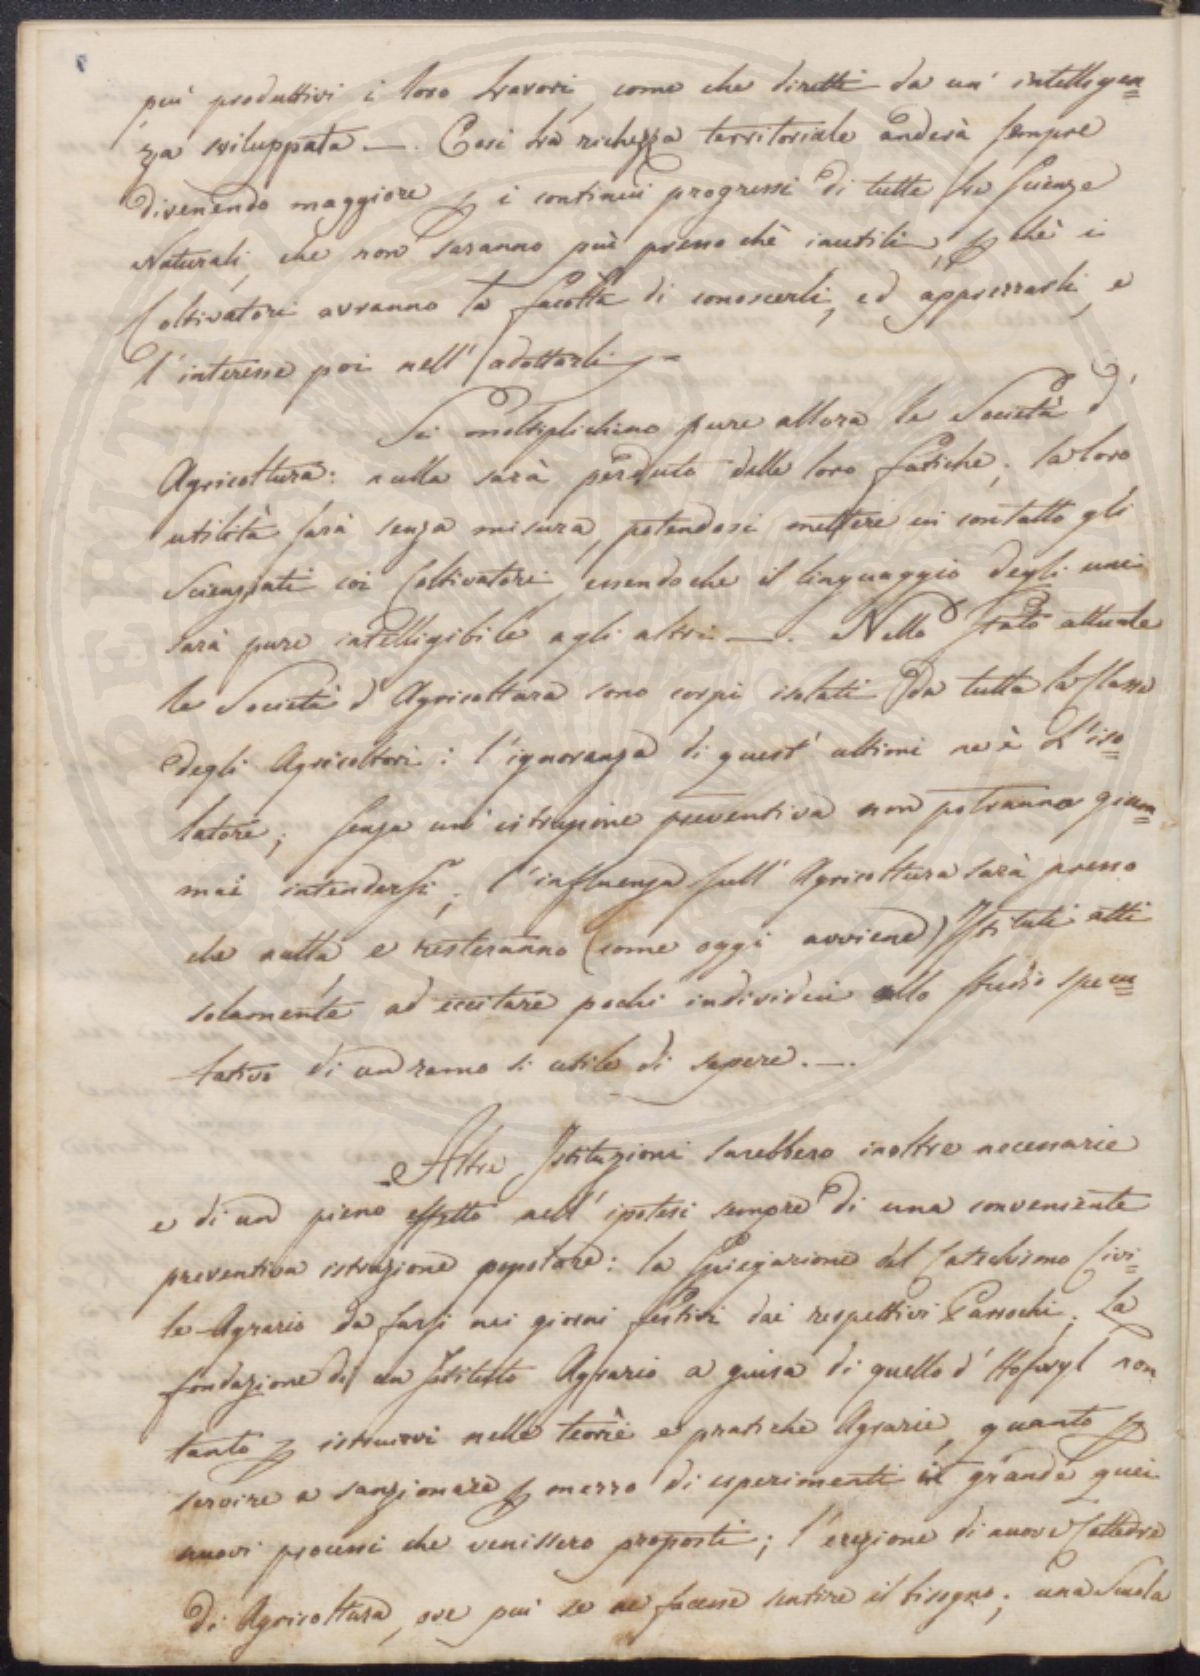 piu' produttivi i loro lavori, come che diretti da un' intelligen=
za sviluppata —. Così la richezza territoriale anderà sempre
divenendo maggiore p i continui progressi di tutte le scienze
Naturali, che non saranno più presso chè inutili, p chè i
Coltivatori avranno la facoltà di conoscerli, ed apprezzarli, e
l'interesse poi nell' adottarli —
Si moltiplichino pure allora le Società d'
Agricoltura: nulla sarà perduto delle loro fatiche; la loro
utilità sarà senza misura, potendosi mettere in contatto gli
Scienziati coi Coltivatori, essendoche il linguaggio degli uni
sarà pure intelligibile agli altri —. Nello stato attuale
le Società d' Agricoltura sono corpi isolati da tutta la Classe
degli Agricoltori: l'ignoranza di quest' ultimi ne è L'iso=
latore; senza un' istruzione preventiva non potranno giam=
mai intendersi; l'influenza sull' Agricoltura sarà presso
che nulla e resteranno (come oggi avviene) Istituti atti
solamente ad eccitare pochi individui allo studio specu=
lativo di un ramo sì utile di sapere. —.
Altre Istituzioni sarebbero inoltre necessarie
e di un pieno effetto nell' ipotesi sempre di una conveniente
preventiva istruzione popolare: la spiegazione del Catechismo Civi=
le-Agrario da farsi nei giorni festivi dai respettivi Parrochi; La
fondazione di un Istituto Agrario a guisa di quello d' Hofwyl non
tanto p istruirvi nelle teorie e pratiche Agrarie, quanto p
servire a sanzionare p mezzo di esperimenti in grande quei
nuovi processi che venissero proposti; l'erezione di nuove Cattedre
di Agricoltura, ove più se ne facesse sentire il bisogno; una Scuola